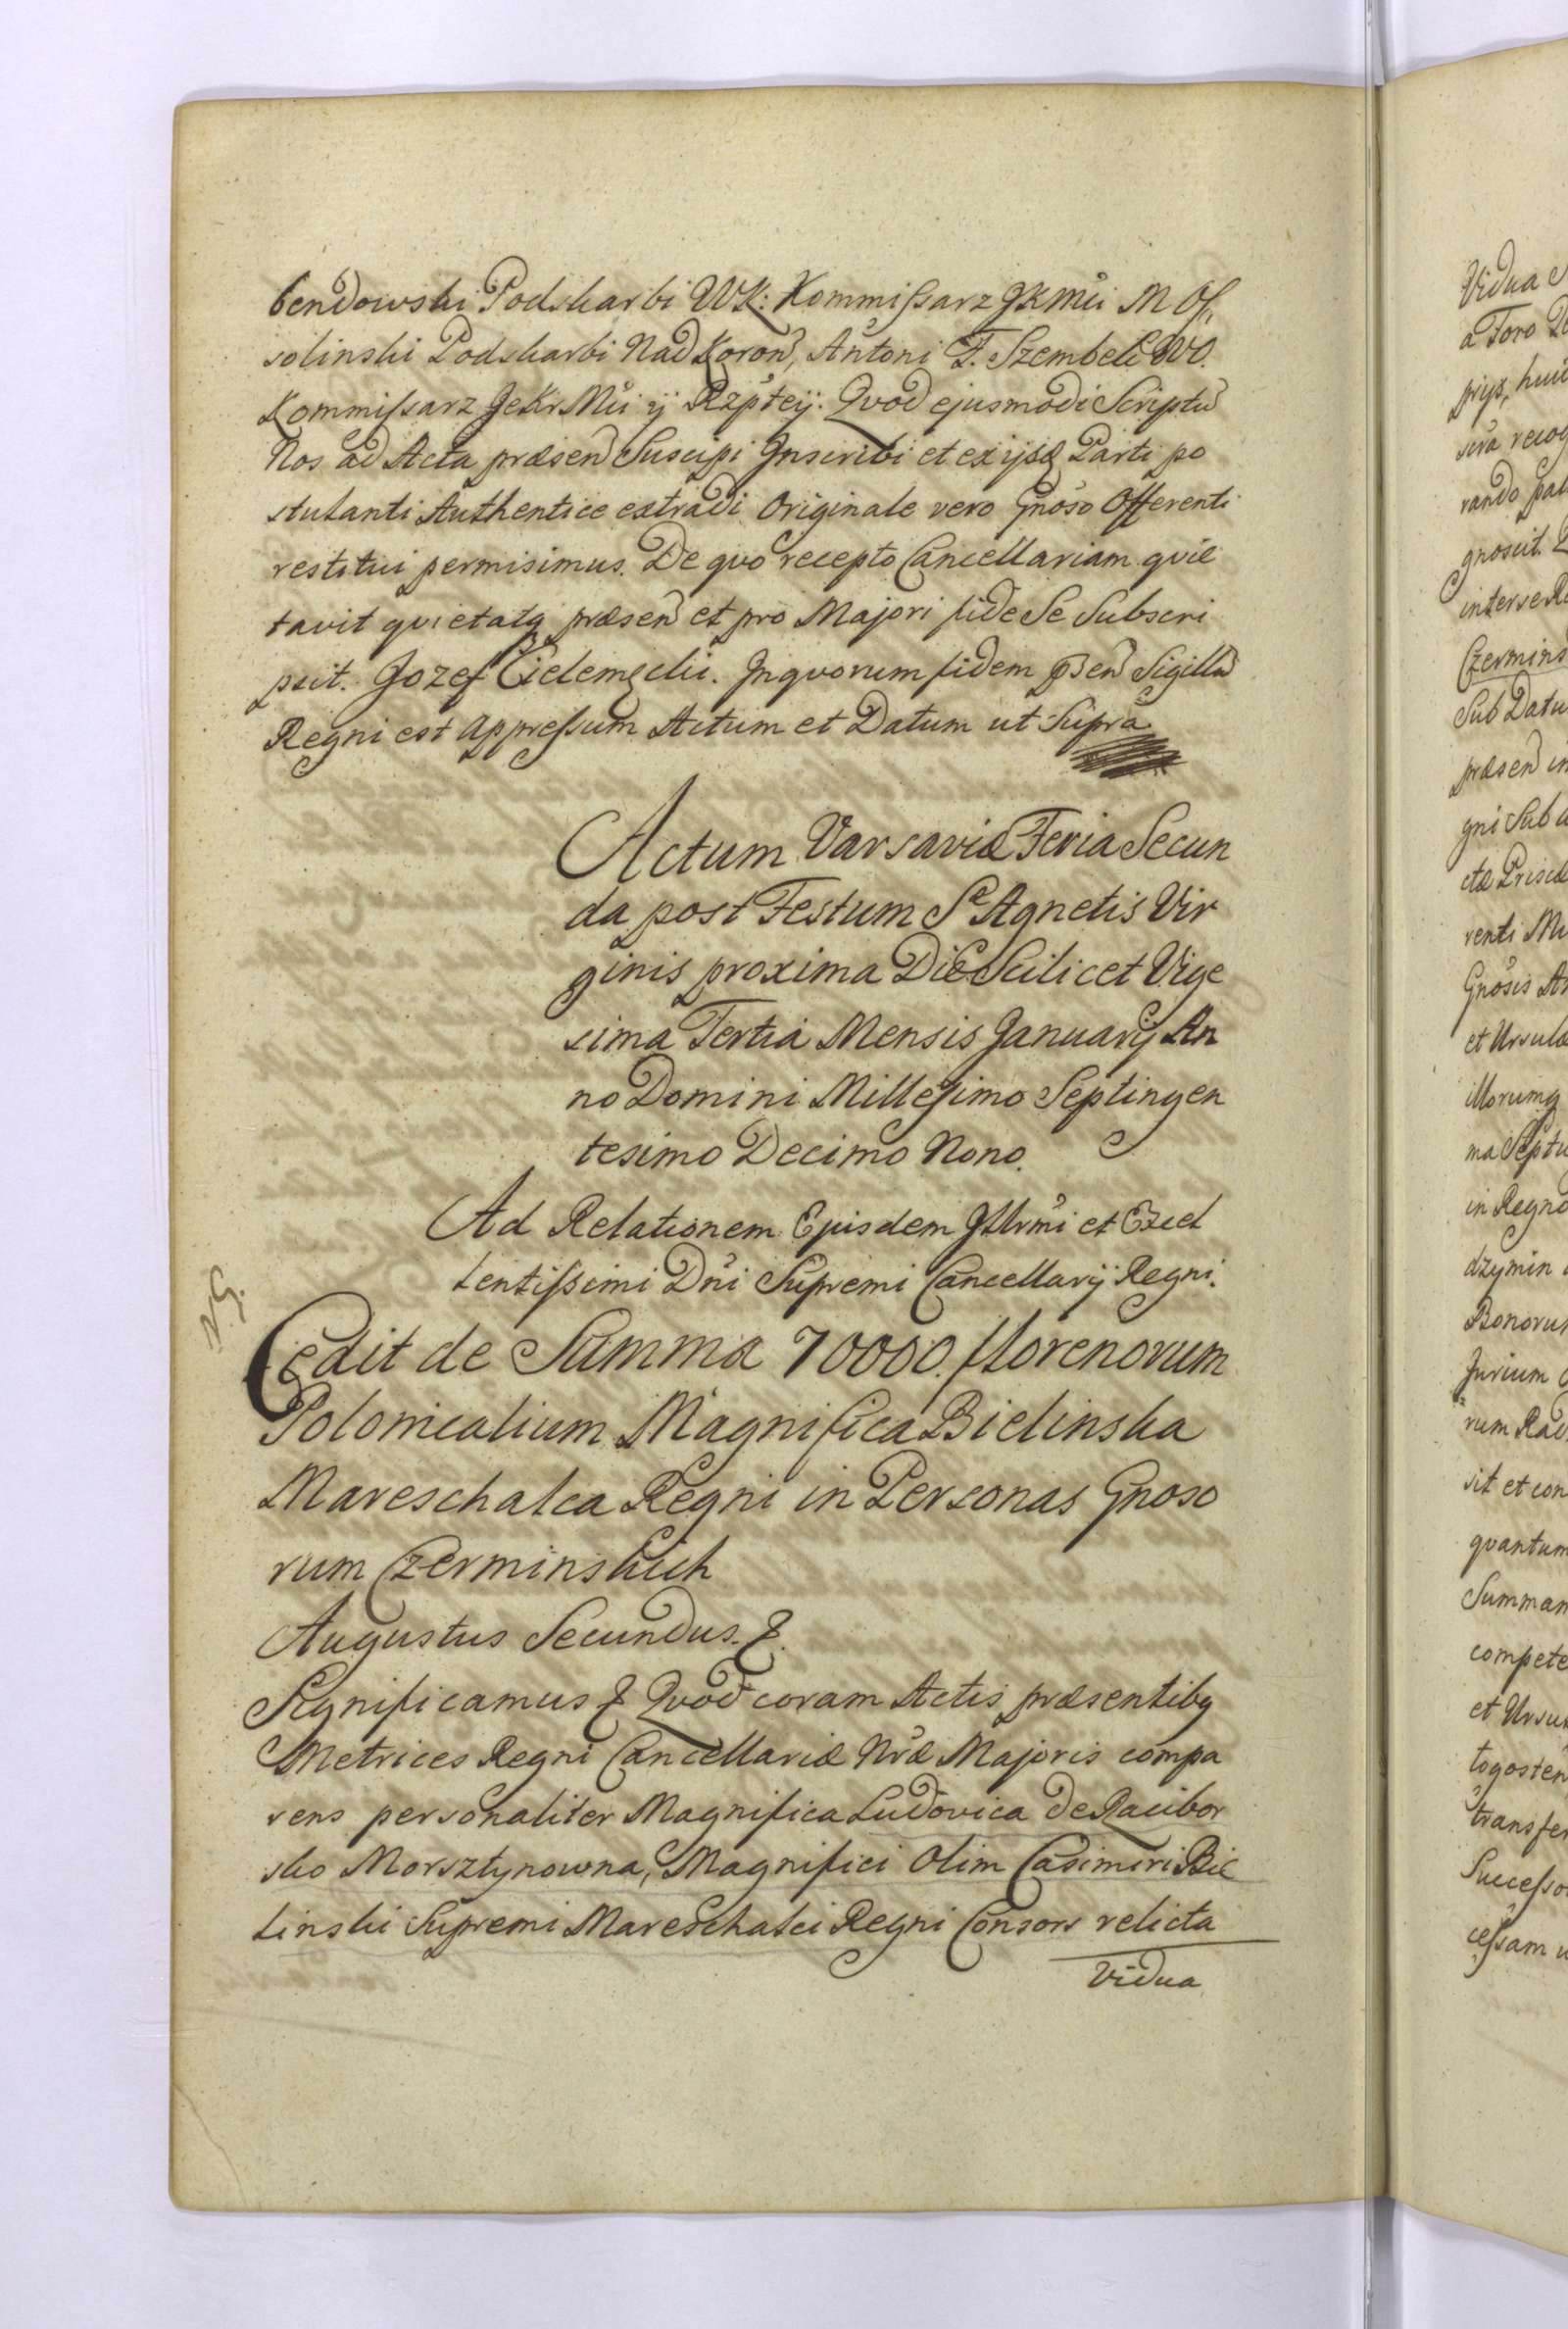 bendowski Podskarbi WK: Kommissarz JKMći M Os,
solinski Podskarbi Nad Koron, Antoni F. Szembek SWO.
Kommissarz JeKrMći ij Rzpteij. Qvod ejusmodi Scriptu
Nos ad Acta præsen Suscipi Inscribi et ex ijsdq Parti po
stulanti Authentice extradi Originale vero Gnoso Offerenti
restitui permisimus. De qvo recepto Cancellariam qvie
tavit qvietatq præsen et pro Majori fide Se Subscri
psit. Jozef In qvorum fidem pnsen Sigillu
Regni est appressum Actum et Datum ut Supra
Actum Varsaviæ Feria Secun
da post Festum Sæ Agnetis Vir
ginis proxima Die Scilicet Vige
sima Tertia Mensis Januarij An
no Domini Millesimo Septingen
tesimo Decimo Nono.
Ad Relationem Ejusdem Illrmi et Excel
lentissimi Dni Supremi Cancellarij Regni.
N.G.
Cedit de Summa 70000. florenorum
Polonicalium Magnifica Bielinska
Mareschalca Regni in Personas Gnoso
rum Czerminskich
Augustus Secundus. &.
Significamus & Qvod coram Actis præsentibq
Metrices Regni Cancellariæ Nræ Majoris compa
rens personaliter Magnifica Ludovica de Racibor
sko Morsztynowna, Magnifici Olim Casimiri Bie
linski Supremi Mareschalci Regni Consors relicta
Vidua
Vidua
a Foro
prijs, huic
sua recog
rando pal
gnoscit
inter se
Czermins
Sub Datu
præsen in
gni Sub
ctæ Priscæ
renti
Gnosis
et Ursulæ
illorumq
ma Septu
in Regno
dzymin
Bonorum
Jurium
rum
sit et con
qvantum
Summam
compete
et Ursu
togosten
transfer
Successo
cessam